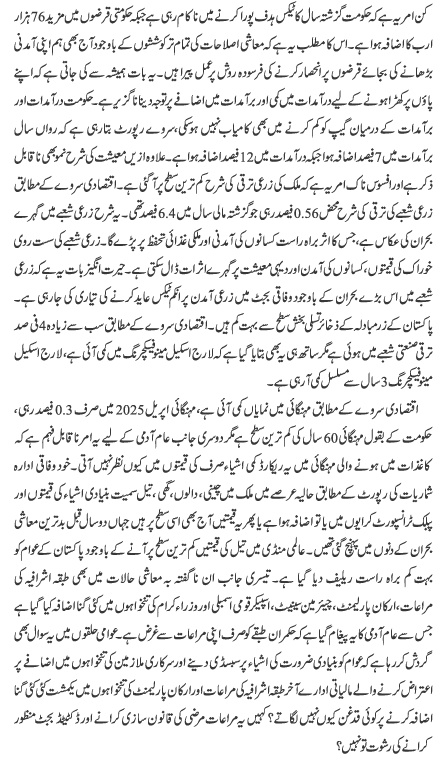 کن امر یہ ہے کہ حکومت گزشتہ سال کا ٹیکس ہدف پورا کرنے میں ناکام رہی ہے جبکہ حکومتی قرضوں میں مزید 76 ہزار
ارب کا اضافہ ہوا ہے۔ اس کا مطلب یہ ہے کہ معاشی اصلاحات کی تمام تر کوششوں کے باوجود آج بھی ہم اپنی آمدنی
بڑھانے کی بجائے قرضوں پر انحصار کرنے کی فرسودہ روش پر عمل پیرا ہیں۔ یہ بات ہمیشہ سے کی جاتی ہے کہ اپنے
پاؤں پر کھڑا ہونے کے لیے درآمدات میں کمی اور برآمدات میں اضافے پر توجہ دینا ناگزیر ہے۔ حکومت درآمدات اور
برآمدات کے درمیان گیپ کو کم کرنے میں بھی کامیاب نہیں ہو سکی، سروے رپورٹ بتا رہی ہے کہ رواں سال
برآمدات میں 7 فیصد اضافہ ہوا جبکہ درآمدات میں 12 فیصد اضافہ ہوا ہے۔ علاوہ ازیں معیشت کی شرح نمو بھی ناقابل
ذکر ہے اور افسوس ناک امر یہ ہے کہ ملک کی زرعی ترقی کی شرح کم ترین سطح پر آ گئی ہے۔ اقتصادی سروے کے مطابق
زرعی شعبے کی ترقی کی شرح محض 0.56 فیصد رہی جو گزشتہ مالی سال میں 6.4 فیصد تھی۔ یہ شرح زرعی شعبے میں گہرے
بحران کی عکاس ہے، جس کا اثر براہ راست کسانوں کی آمدنی اور ملکی غذائی تحفظ پر پڑے گا۔ زرعی شعبے کی سست روی
خوراک کی قیمتوں، کسانوں کی آمدن اور دیہی معیشت پر گہرے اثرات ڈال سکتی ہے۔ حیرت انگیز بات یہ ہے کہ زرعی
شعبے میں اس بڑے بحران کے باوجود وفاقی بجٹ میں زرعی آمدن پر انکم ٹیکس عاید کرنے کی تیاری کی جا رہی ہے۔
پاکستان کے زرمبادلہ کے ذخائر تسلی بخش سطح سے بہت کم ہیں۔ اقتصادی سروے کے مطابق سب سے زیادہ 4 فی صد
ترقی صنعتی شعبے میں ہوئی ہے مگر ساتھ ہی یہ بھی بتایا گیا ہے کہ لارج اسکیل مینوفیکچرنگ میں کمی آئی ہے، لارج اسکیل
مینوفیکچرنگ 3 سال سے مسلسل کمی آ رہی ہے۔
اقتصادی سروے کے مطابق مہنگائی میں نمایاں کمی آئی ہے، مہنگائی اپریل 2025 میں صرف 0.3 فیصد رہی،
حکومت کے بقول مہنگائی 60 سال کی کم ترین سطح ہے مگر دوسری جانب عام آدمی کے لیے یہ امر ناقابل فہم ہے کہ
کاغذات میں ہونے والی مہنگائی میں یہ ریکارڈ کمی اشیاء صرف کی قیمتوں میں کیوں نظر نہیں آتی۔ خود وفاقی ادارہ
شماریات کی رپورٹ کے مطابق حالیہ عرصے میں ملک میں چینی، دالوں، گھی، تیل سمیت بنیادی اشیاء کی قیمتوں اور
پبلک ٹرانسپورٹ کرایوں میں یا تو اضافہ ہوا ہے یا پھر یہ قیمتیں آج بھی اسی سطح پر ہیں جہاں دو سال قبل بدترین معاشی
بحران کے دنوں میں پہنچ گئی تھیں۔ عالمی منڈی میں تیل کی قیمتیں کم ترین سطح پر آنے کے باوجود پاکستان کے عوام کو
بہت کم براہ راست ریلیف دیا گیا ہے۔ تیسری جانب ان ناگفتہ بہ معاشی حالات میں بھی طبقہ اشرافیہ کی
مراعات، ارکان پارلیمنٹ، چیئرمین سینیٹ، اسپیکر قومی اسمبلی اور وزراء کرام کی تنخواہوں میں کئی گنا اضافہ کیا گیا ہے
جس سے عام آدمی کا یہ پیغام گیا ہے کہ حکمران طبقے کو صرف اپنی مراعات سے غرض ہے۔ عوامی حلقوں میں یہ سوال بھی
گردش کر رہا ہے کہ عوام کو بنیادی ضرورت کی اشیاء پر سبسڈی دینے اور سرکاری ملازمین کی تنخواہوں میں اضافے پر
اعتراض کرنے والے مالیاتی ادارے آخر طبقہ اشرافیہ کی مراعات اور ارکان پارلیمنٹ کی تنخواہوں میں یکمشت کئی کئی گنا
اضافہ کرنے پر کوئی قدغن کیوں نہیں لگاتے؟ کہیں یہ مراعات مرضی کی قانون سازی کرانے اور ڈکٹیٹڈ بجٹ منظور
کرانے کی رشوت تو نہیں؟